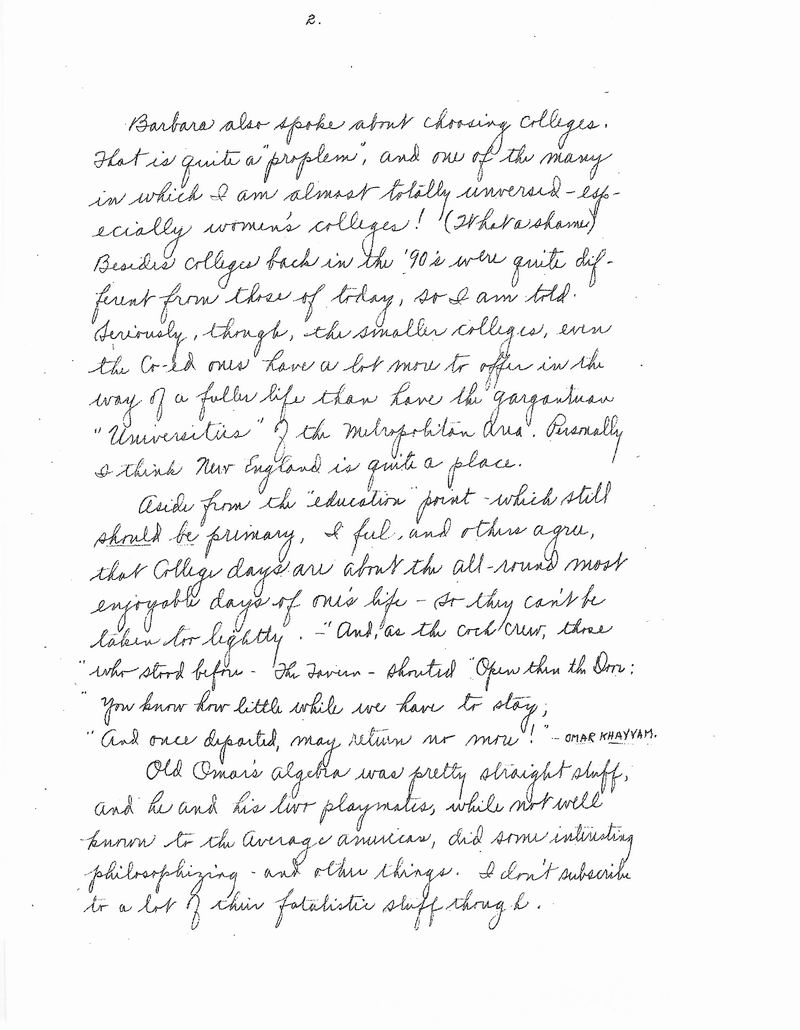 2.
Barbara also spoke about choosing colleges.
That is quite a "proplem", and one of the many
in which I am almost totally unversed - esp-
ecially women's colleges! (What a shame)
Besides colleges back in the '90's were quite dif-
ferent from those of today, so I am told.
Seriously, though, the smaller colleges, even
the Co-ed ones have a lot more to offer in the
way of a fuller life than have the gargantuan
"Universities" of the Metropolitan Area. Personally
I think New England is quite a place.
Aside from the "education" point - which still
should be primary, I feel, and others agree,
that College days are about the all-round most
enjoyable days of one's life - so they can't be
taken too lightly. - "And, as the cock crew, those
"who stood before - The Tavern - shouted "Open then the Door:
"You know how little while we have to stay;
"And once departed, may return no more!" - OMAR KHAYYAM.
Old Omar's algebra was pretty straight stuff,
and he and his two playmates, while not well
known to the average american, did some interesting
philosophizing - and other things. I don't subscribe
to a lot of their fatalistic stuff though.